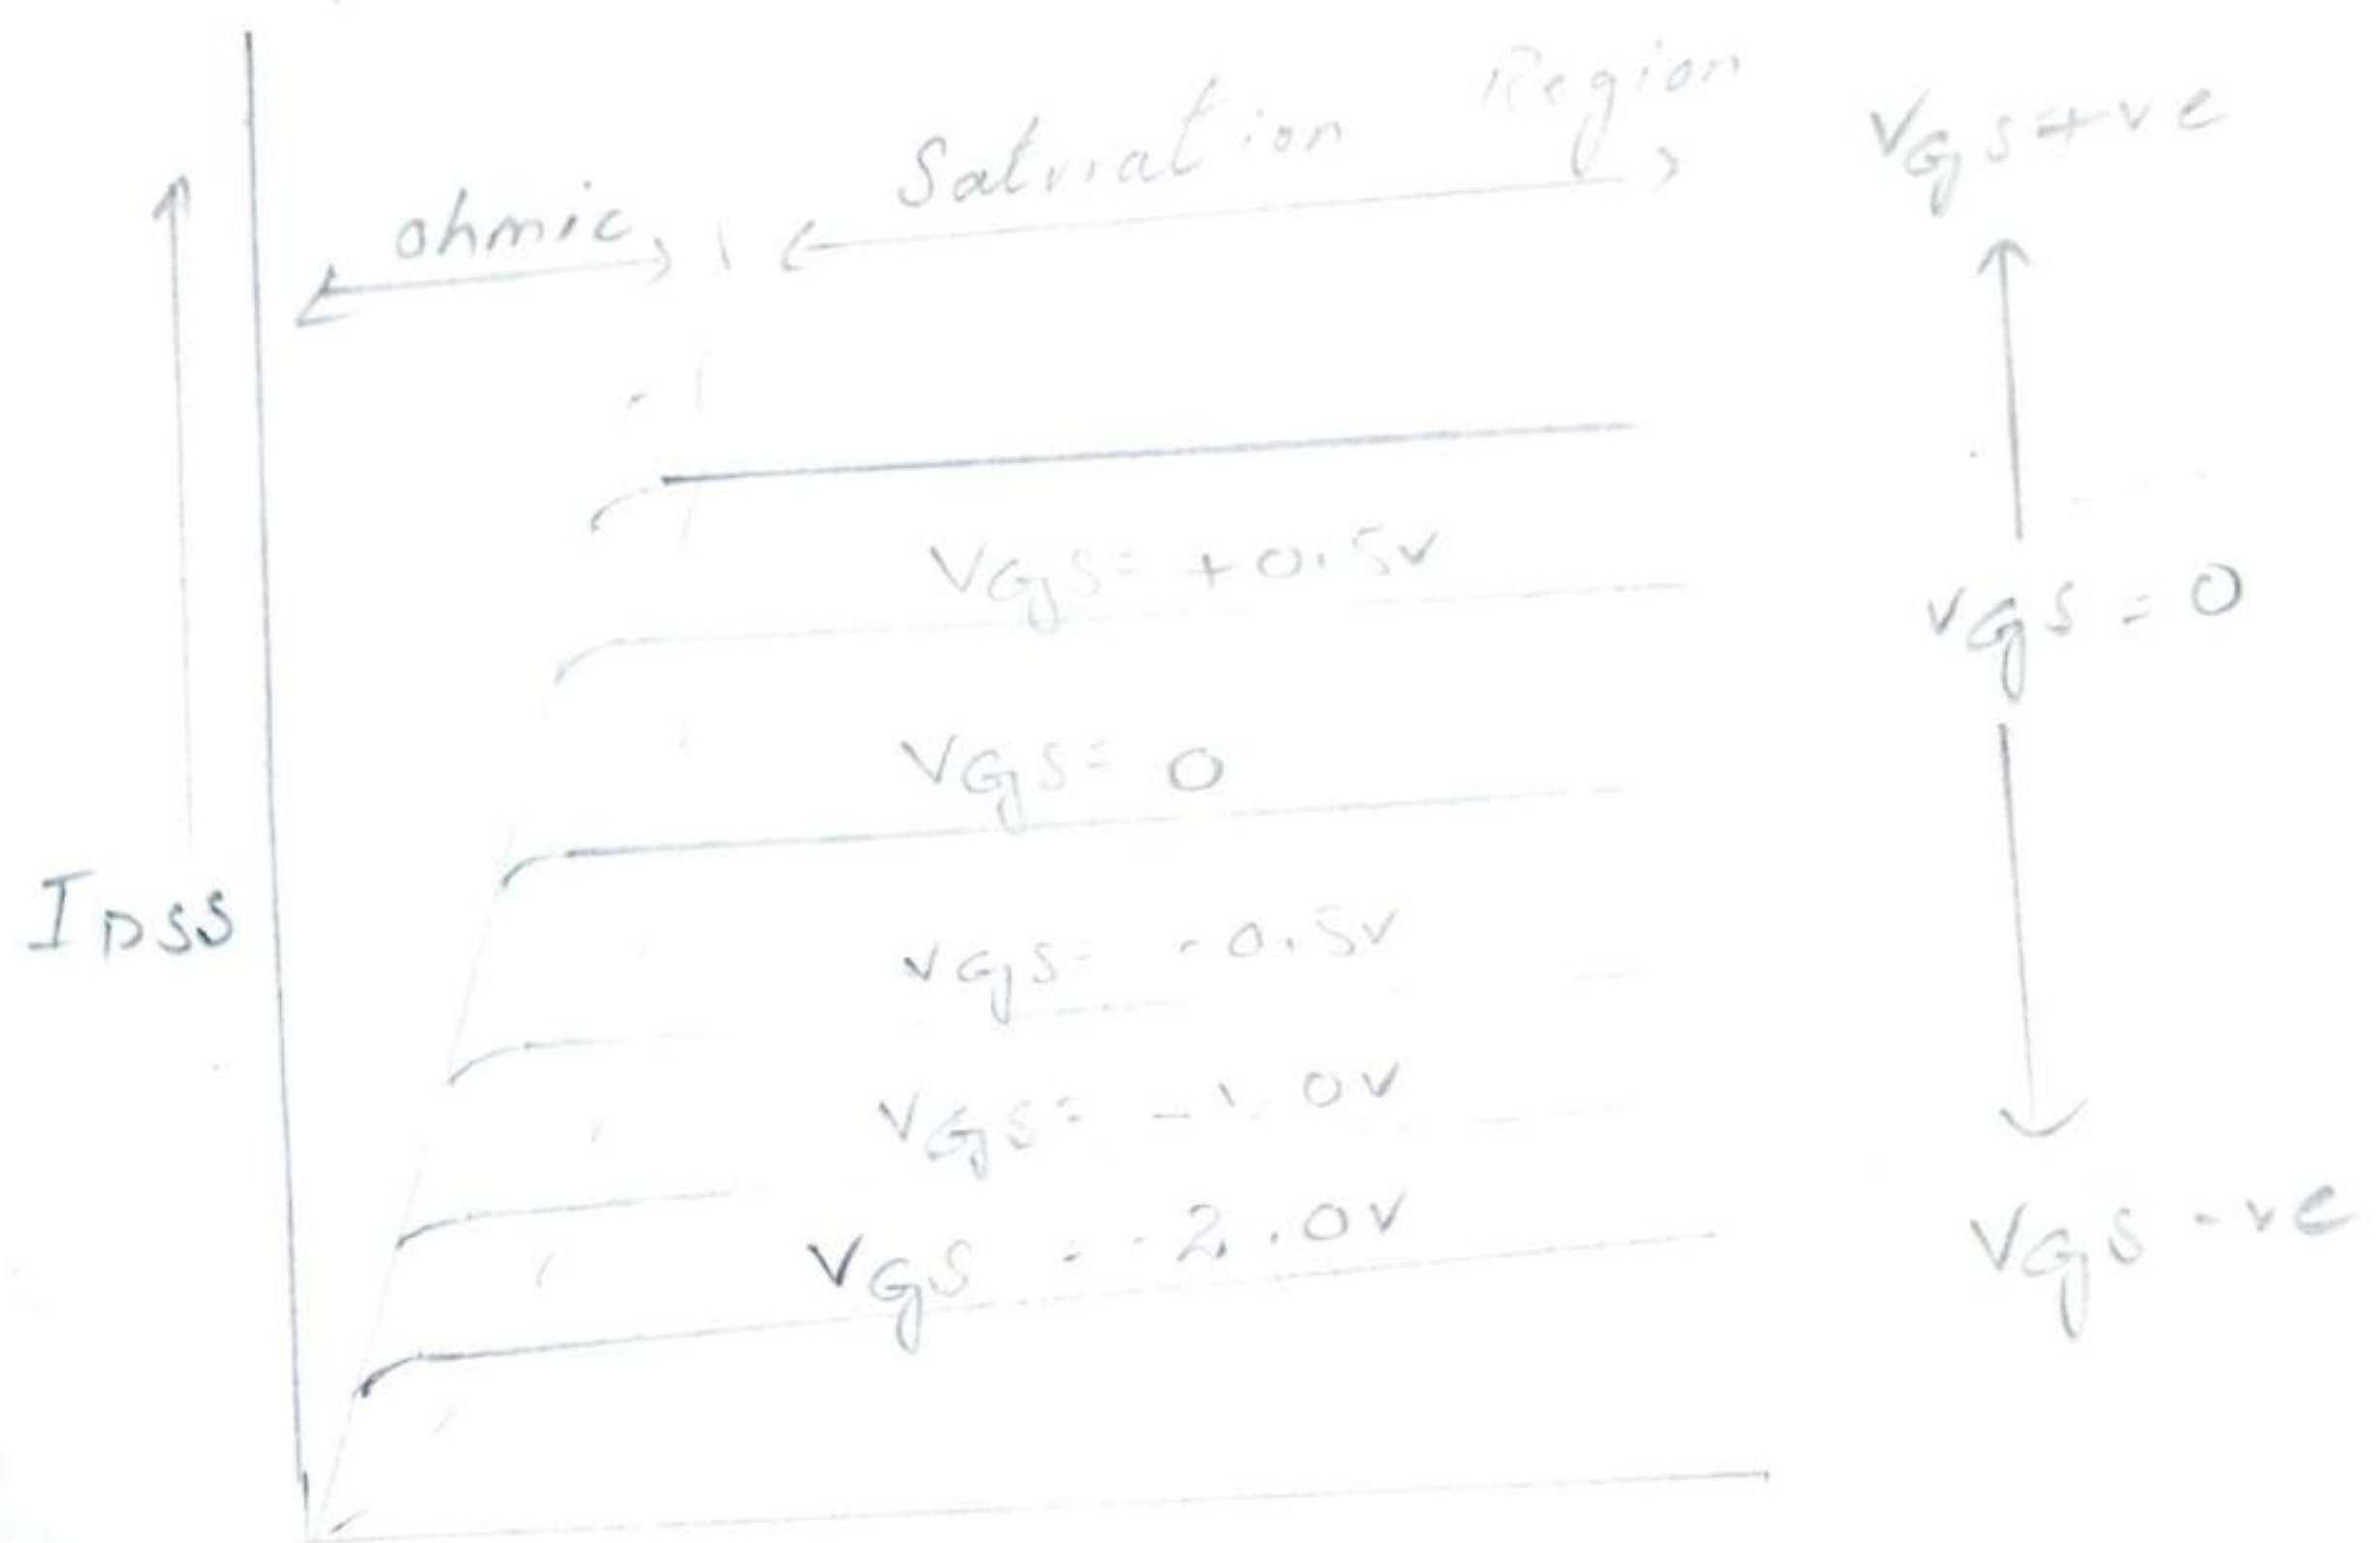 Saturation Region
ohmic
VGS +ve
VGS = +0.5V
VGS = 0
VGS = 0
IDSS
VGS = -0.5V
VGS = -1.0V
VGS = -2.0V
VGS -ve